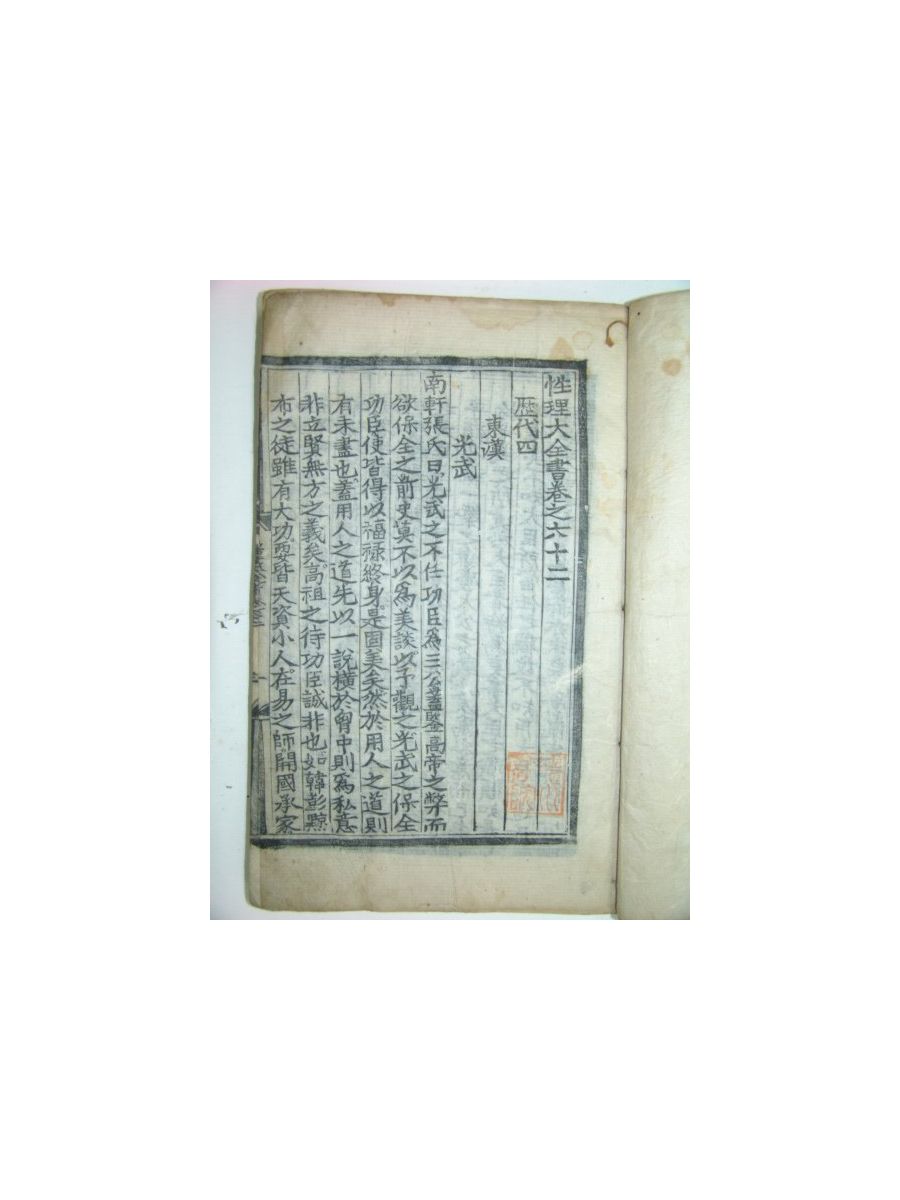 性理大全書卷之六十二
歷代四
東漢
光武
南軒張氏曰光武之不任功臣爲三公蓋鑒高帝之弊而
欲保全之前史莫不以爲美談以予觀之光武之保全
功臣使皆得以福祿終身是固美矣然於用人之道則
有未盡也蓋用人之道先以一說橫於胷中則爲私意
非立賢無方之義矣高祖之待功臣誠非也如韓彭黥
布之徒雖有大功要皆天資小人在易之師開國承家